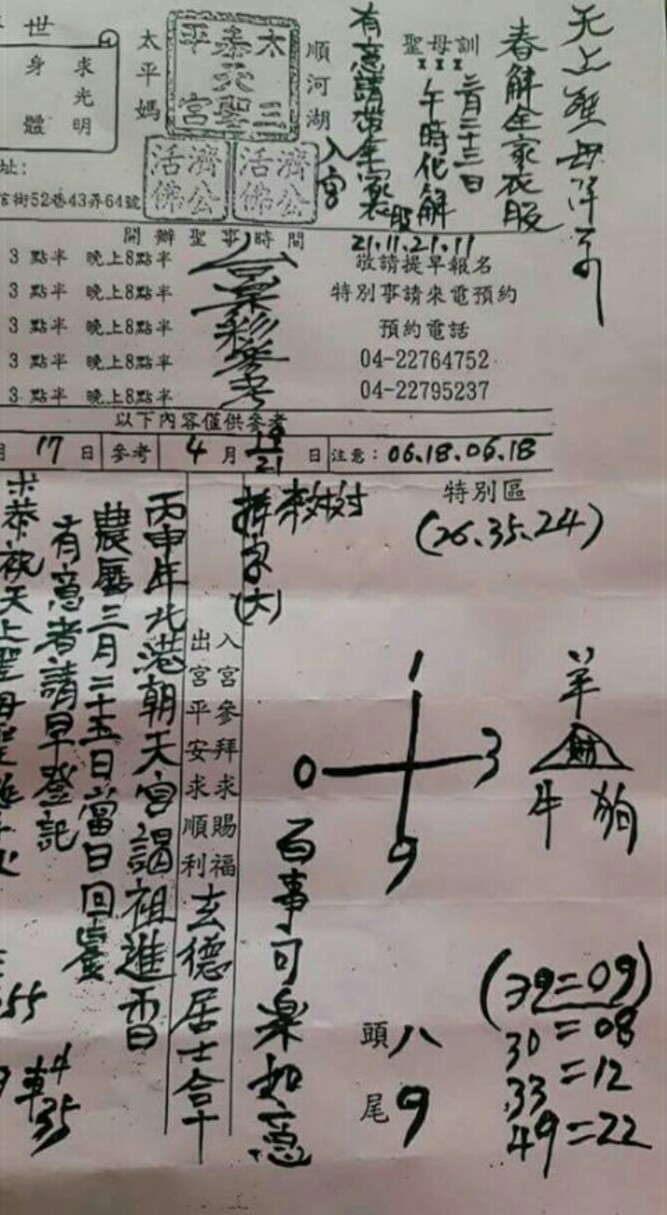 天上聖母降示
春解全家衣服
聖母訓
三月二十三日
午時化解
有意請帶全家衣服
入宮
21.11.21.11
順河湖
太平媽
太三
嘉天聖
平宮
濟公活佛
濟公活佛
世
求光明
身體
址:
街52巷43弄64號
開辦聖事時間
3 點半 晚上8點半
3 點半 晚上8點半
3 點半 晚上8點半
3 點半 晚上8點半
3 點半 晚上8點半
敬請提早報名
特別事請來電預約
預約電話
04-22764752
04-22795237
以下內容僅供參考
月 17 日 參考 4 月 19 21 日 注意: 06.18.06.18
特別區
(26.35.24)
拼字(大)
1
0 3
9
羊
財
牛 狗
百事可樂如意
入宮參拜求賜福
出宮平安求順利
玄德居士合十
丙申年北港朝天宮謁祖進香
農曆三月二十五日當日回鑾
有意者請早登記
恭祝天上聖母聖
55
車 4
35
頭 八
尾 9
(39=09)
30=08
33=12
49=22